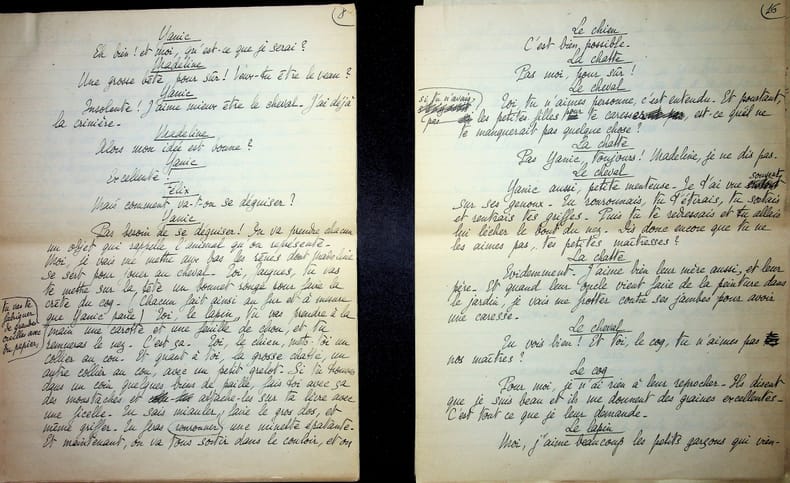 8
Yanic
Eh bien! et moi, qu'est-ce que je serai?
Madeline
Une grosse bête pour sûr! Veux-tu être le veau?
Yanic
Insolente! J'aime mieux être le cheval. J'ai déjà
la crinière.
Madeline
Alors mon idée est bonne?
Yanic
Excellente!
Félix
Mais comment va-t-on se déguiser?
Yanic
Pas besoin de se déguiser! On va prendre chacun
un objet qui rappelle l'animal qu'on représente.
Moi, je vais me mettre aux bas les rênes dont Madeline
se sert pour jouer au cheval. Toi, Jacques, tu vas
te mettre sur la tête un bonnet rouge pour faire la
crête du coq. (Chacun fait ainsi au fur et à mesure
que Yanic parle) Toi, le lapin, tu vas prendre à la
tu vas te
fabriquer
de grandes
oreilles avec
du papier,
main une carotte et une feuille de chou, et tu
remueras le nez. C'est ça. Toi, le chien, mets-toi un
collier au cou. Et quant à toi, la grosse chatte, un
autre collier au cou, avec un petit grelot. Si tu trouves
dans un coin quelques brins de paille, fais-toi avec ça
des moustaches et attache-les sur ta lèvre avec
une ficelle. Tu sais miauler, faire le gros dos, et
même griffer. Tu feras (ronronner) une minette épatante.
Et maintenant, on va tous sortir dans le couloir, et on
16
Le chien
C'est bien possible.
La chatte
Pas moi, pour sûr!
Le cheval
Toi, tu n'aimes personne, c'est entendu. Et pourtant,
si tu n'avais
pas
les petites filles pour te caresser, est-ce qu'il ne
te manquerait pas quelque chose?
La chatte
Pas Yanic, toujours! Madeline, je ne dis pas.
Le cheval
Yanic aussi, petite menteuse. Je t'ai vue souvent
sur ses genoux. Tu ronronnais, tu t'étirais, tu sortais
et rentrais tes griffes. Puis tu te redressais et tu allais
lui lécher le bout du nez. Dis donc encore que tu ne
les aimes pas, tes petites maîtresses?
La chatte
Evidemment. J'aime bien leur mère aussi, et leur
père. Et quand leur oncle vient faire de la peinture dans
le jardin, je vais me frotter contre ses jambes pour avoir
une caresse.
Le cheval
Tu vois bien! Et toi, le coq, tu n'aimes pas
nos maîtres?
Le coq
Pour moi, je n'ai rien à leur reprocher. Ils disent
que je suis beau et ils me donnent des graines excellentes.
C'est tout ce que je leur demande.
Le lapin
Moi, j'aime beaucoup les petits garçons qui vien-